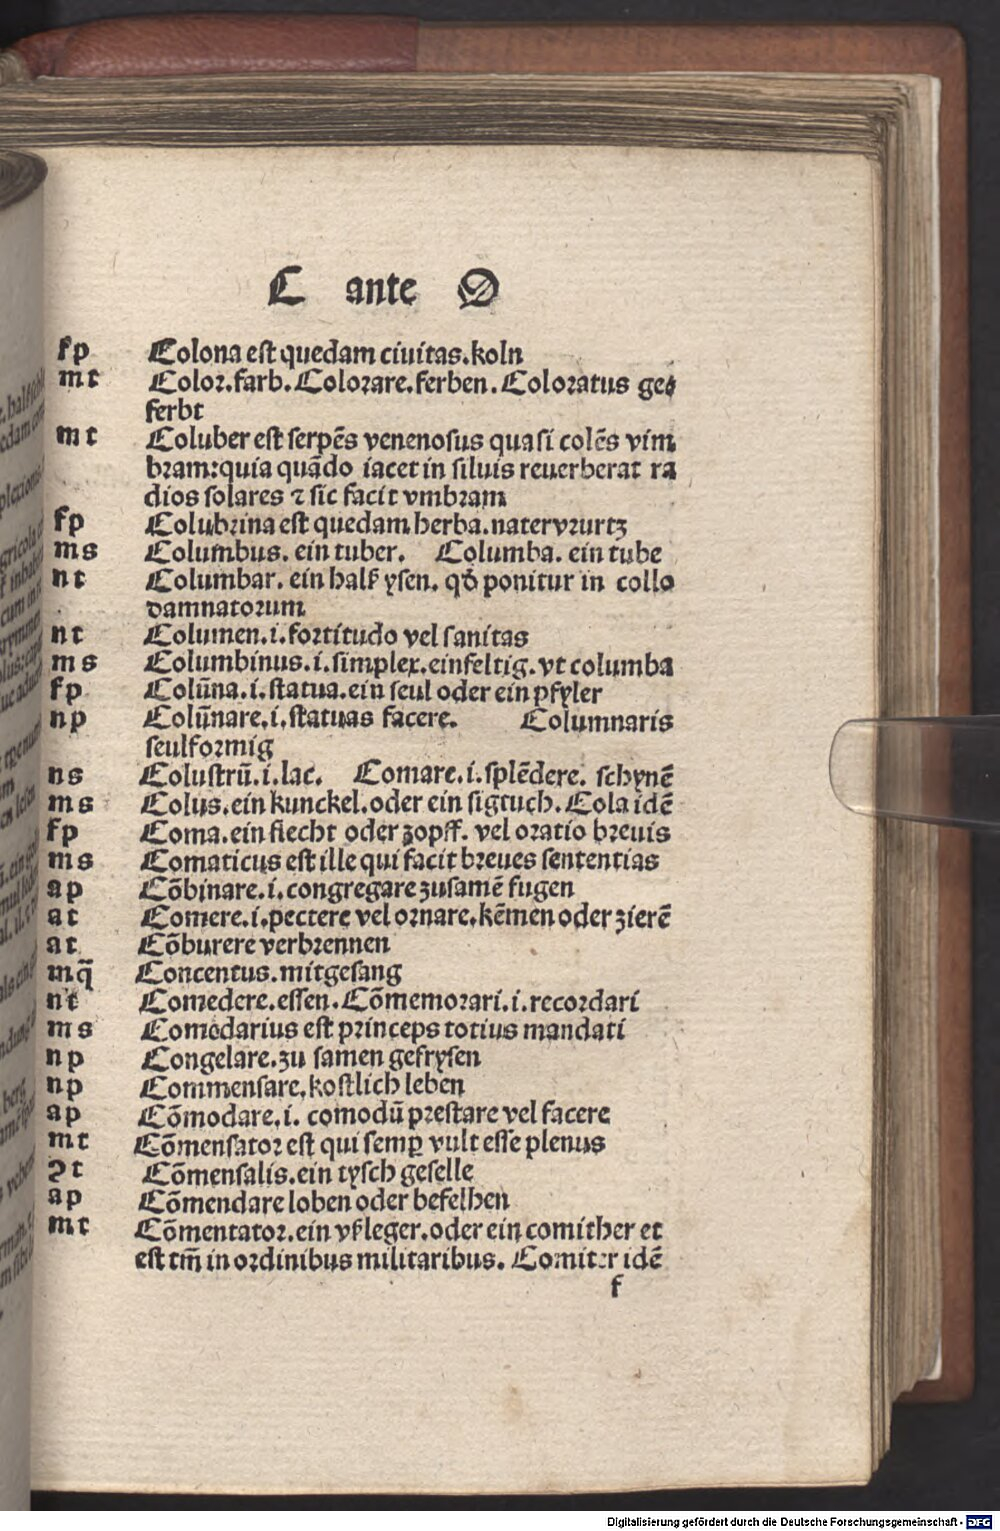 C ante O
fp Colona est quedam ciuitas.koln
mt Color.farb.Colorare.ferben.Coloratus ge⸗
ferbt
mt Coluber est serpēs venenosus quasi colēs vm
bram:quia quādo iacet in siluis reuerberat ra
dios solares ⁊ sic facit vmbram
fp Colubrina est quedam herba.natervrurtz
ms Columbus. ein tuber. Columba. ein tube
nt Columbar. ein halß ysen. qd̄ ponitur in collo
damnatorum
nt Columen.i.fortitudo vel sanitas
ms Columbinus.i.simplex.einfeltig.vt columba
fp Colūna.i.statua.ein seul oder ein pfyler
np Colūnare.i.statuas facere. Columnaris
seulformig
ns Colustrū.i.lac. Comare.i.splēdere. schynē
ms Colus.ein kunckel.oder ein sigtuch.Cola idē
fp Coma.ein flecht oder zopff. vel oratio breuis
ms Comaticus est ille qui facit breues sententias
ap Cōbinare.i.congregare zusamē fugen
at Comere.i.pectere vel ornare.kēmen oder zierē
at Cōburere verbrennen
mq̄ Concentus.mitgesang
nt Comedere.essen.Cōmemorari.i.recordari
ms Comēdarius est princeps totius mandati
np Congelare.zu samen gefrysen
np Commensare.kostlich leben
ap Cōmodare.i. comodū prestare vel facere
mt Cōmensator est qui semꝑ vult esse plenus
ꝯt Cōmensalis.ein tysch geselle
ap Cōmendare loben oder befelhen
mt Cōmentator.ein vßleger.oder ein comither et
est tm̄ in ordinibus militaribus. Comiter idē
f
Digitalisierung gefördert durch die Deutsche Forschungsgemeinschaft - DFG